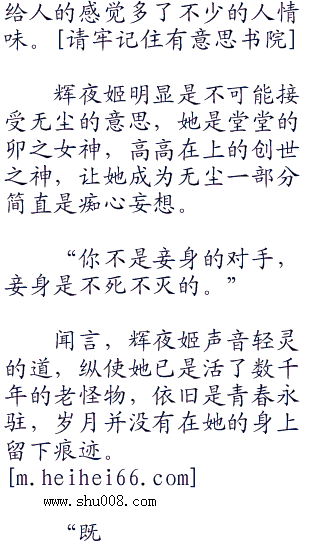 给人的感觉多了不少的人情
味。[请牢记住有意思书院]
辉夜姬明显是不可能接
受无尘的意思，她是堂堂的
卯之女神，高高在上的创世
之神，让她成为无尘一部分
简直是痴心妄想。
“你不是妾身的对手，
妾身是不死不灭的。”
闻言，辉夜姬声音轻灵
的道，纵使她已是活了数千
年的老怪物，依旧是青春永
驻，岁月并没有在她的身上
留下痕迹。
[m.heihei66.com]
www.shu008.com
“既